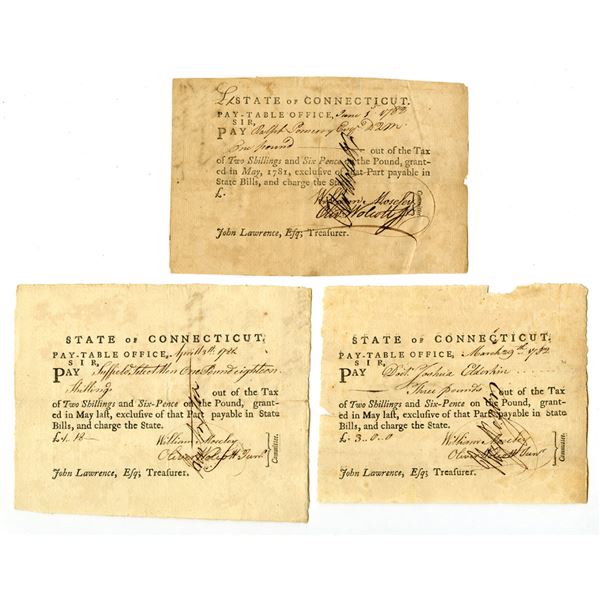 STATE OF CONNECTICUT.
PAY-TABLE OFFICE, June 1st 1782
SIR,
PAY Ralph Pomeroy Esqr D.Q.M.
One pound out of the Tax
of Two Shillings and Six Pence on the Pound, grant-
ed in May, 1781, exclusive of that Part payable in
State Bills, and charge the State.
£.
William Moseley
Olivr Wolcott Jr
Committee.
John Lawrence, Esq; Treasurer.
STATE OF CONNECTICUT.
PAY-TABLE OFFICE, April 1782
SIR,
PAY One Pound eighteen
Shillings out of the Tax
of Two Shillings and Six-Pence on the Pound, grant-
ed in May last, exclusive of that Part payable in State
Bills, and charge the State.
£1. 18
William Moseley
Oliver Wolcott Junr
Committee.
John Lawrence, Esq; Treasurer.
STATE OF CONNECTICUT.
PAY-TABLE OFFICE, March 29th 1782
SIR,
PAY Joshua Elderkin
Three pounds out of the Tax
of Two Shillings and Six-Pence on the Pound, grant-
ed in May last, exclusive of that Part payable in State
Bills, and charge the State.
£ 3..0..0
William Moseley
Oliver Wolcott Junr
Committee.
John Lawrence, Esq; Treasurer.